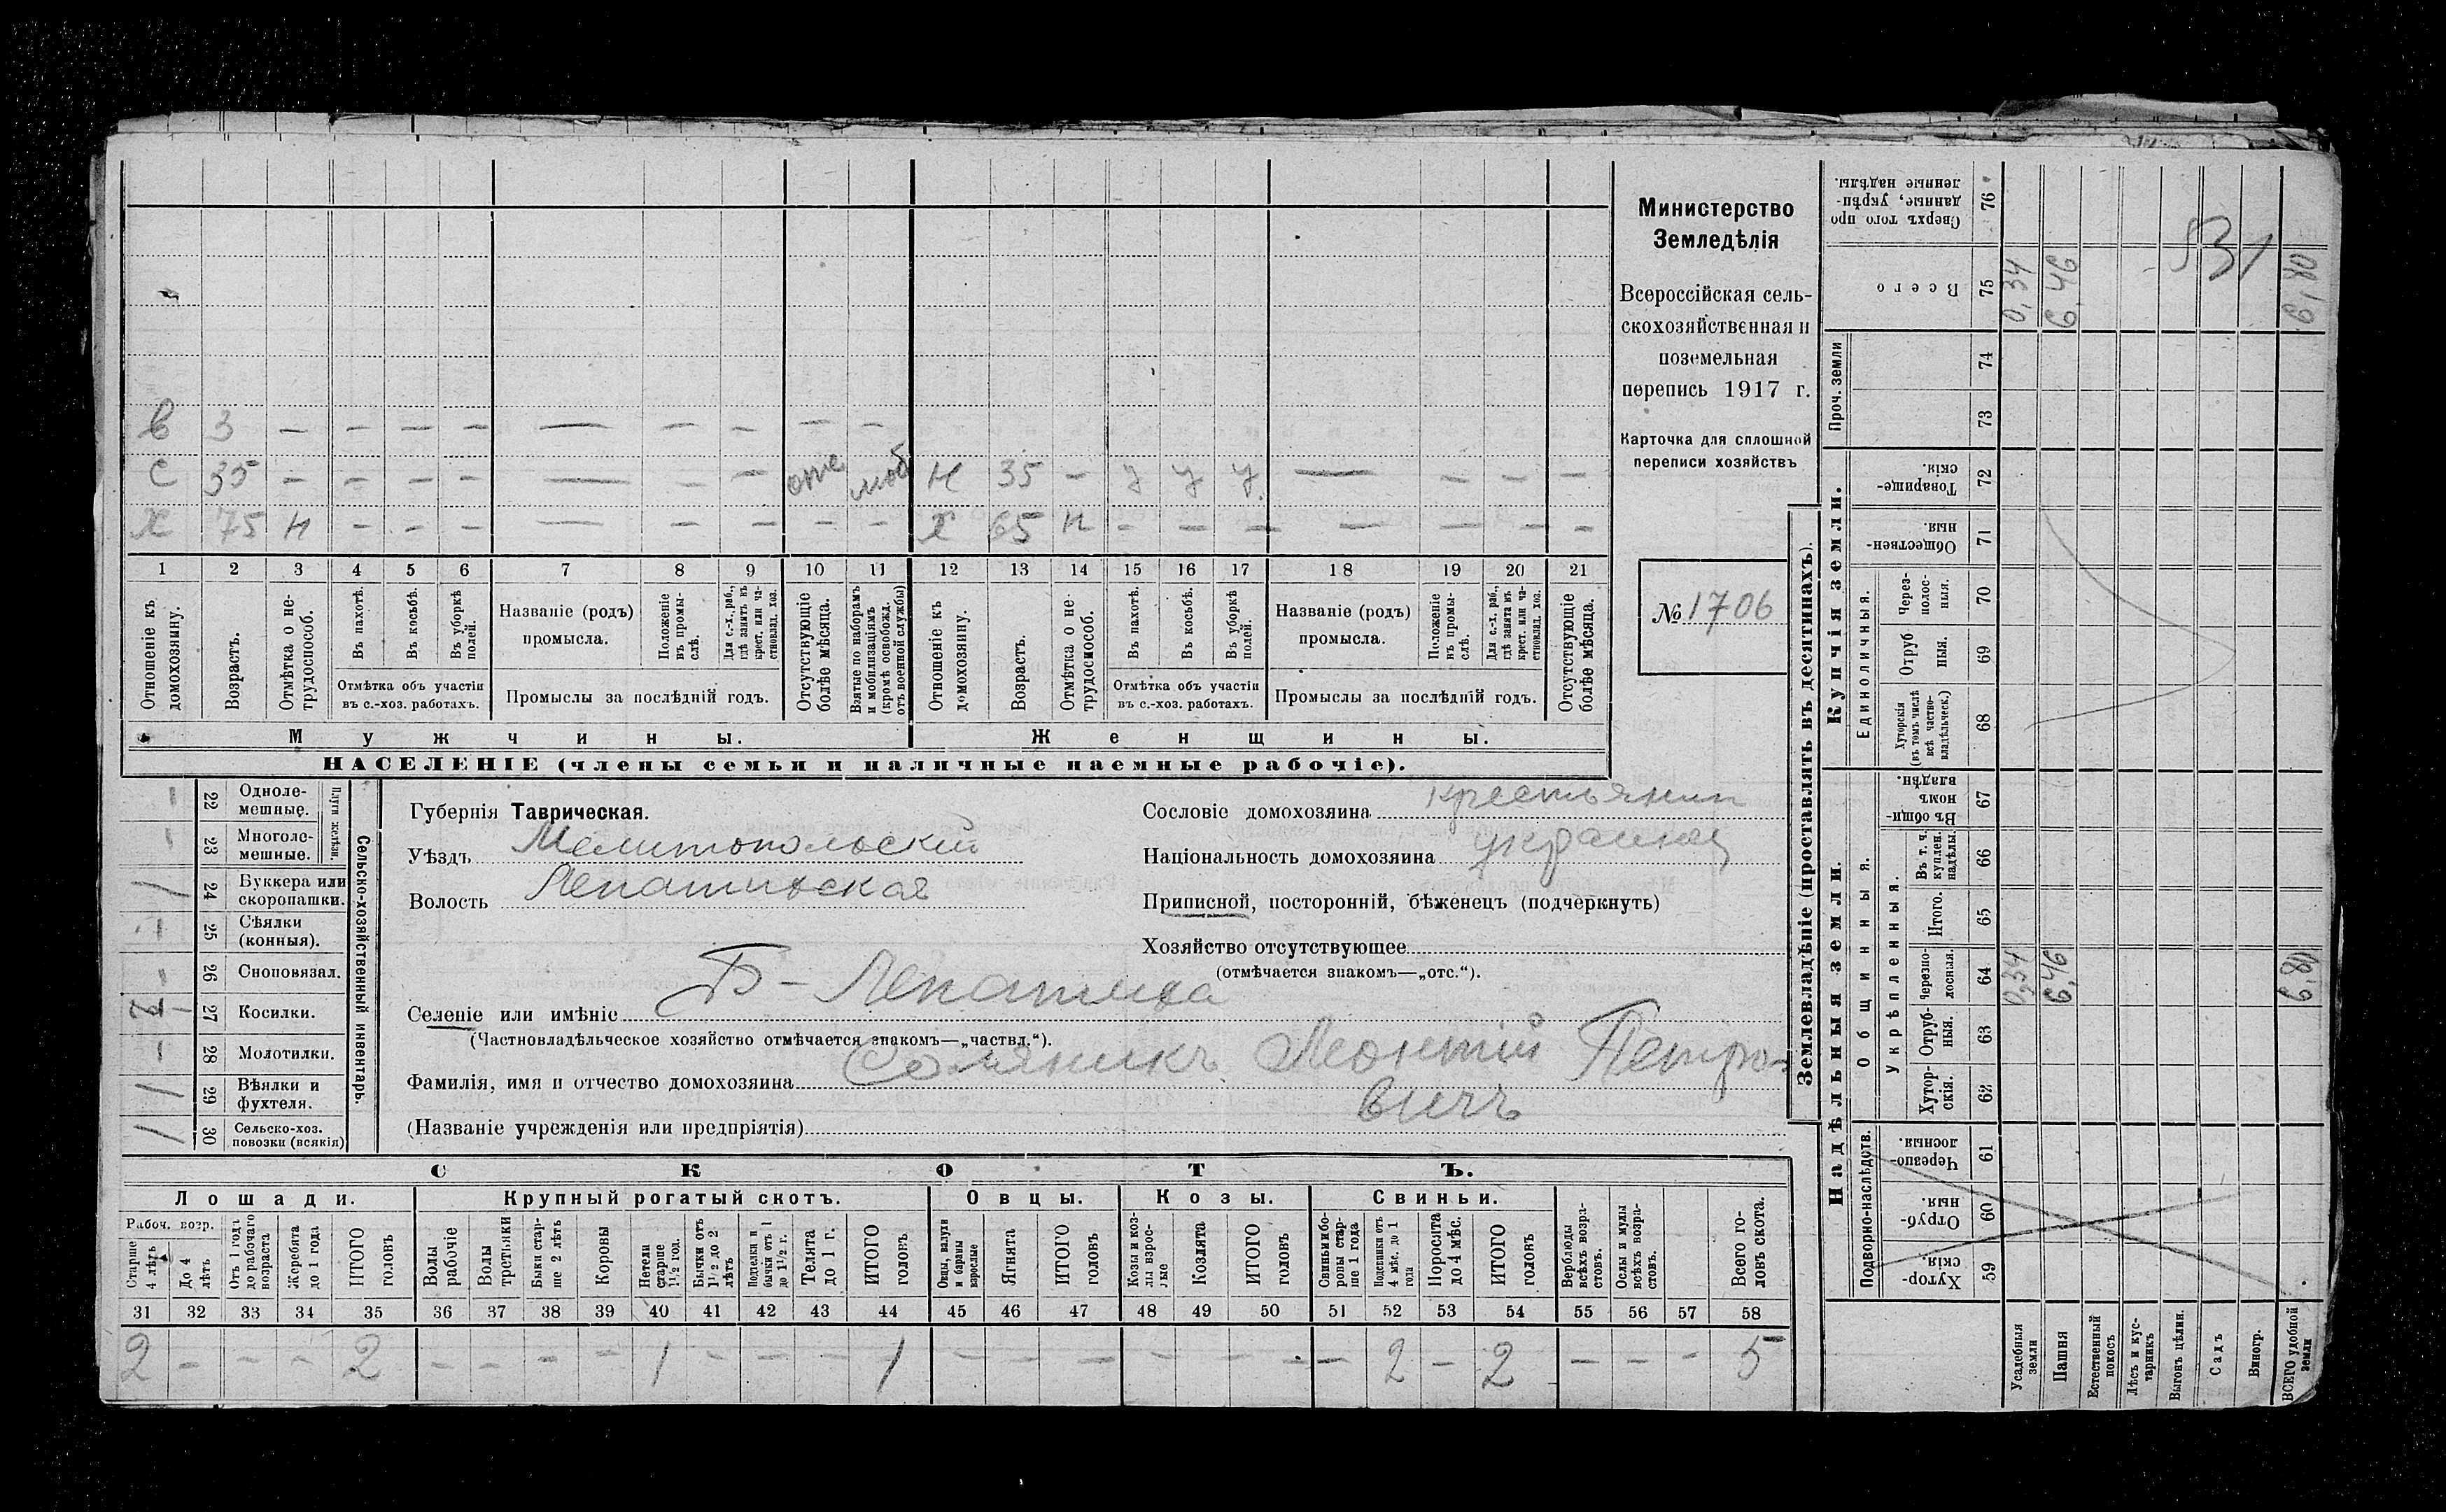 Министерство
Земледѣлія
Всероссійская сель-
скохозяйственная и
поземельная
перепись 1917 г.
Карточка для сплошной
переписи хозяйствъ
№ 1706
531
В 3 — — — — — — — — —
С 35 — — — — — — — отс моб Н 35 — У У У — — — —
Х 75 Н — — — — — — — — Х 65 Н — — — — — — —
1 2 3 4 5 6 7 8 9 10 11 12 13 14 15 16 17 18 19 20 21
Отношеніе къ домохозяину.
Возрастъ.
Отмѣтка о не-трудоспособ.
Въ пахотѣ.
Въ косьбѣ.
Въ уборкѣ полей.
Отмѣтка объ участіи
въ с.-хоз. работахъ.
Названіе (родъ)
промысла.
Положеніе въ промы-слѣ.
Для с.-х. раб., гдѣ занятъ въ крест. или ча-стновлад. хоз.
Промыслы за послѣдній годъ.
Отсутствующіе болѣе мѣсяца.
Взятые по наборамъ и мобилизаціямъ (кромѣ освобожд. отъ военной службы)
Отношеніе къ домохозяину.
Возрастъ.
Отмѣтка о не-трудоспособ.
Въ пахотѣ.
Въ косьбѣ.
Въ уборкѣ полей.
Отмѣтка объ участіи
въ с.-хоз. работахъ.
Названіе (родъ)
промысла.
Положеніе въ промы-слѣ.
Для с.-х. раб., гдѣ занята въ крест. или ча-стновлад. хоз.
Промыслы за послѣдній годъ.
Отсутствующіе болѣе мѣсяца.
Мужчины. Женщины.
НАСЕЛЕНІЕ (члены семьи и наличные наемные рабочіе).
Сельско-хозяйственный инвентарь.
Плуги желѣзн.
22 Одноле-мешные. —
23 Многоле-мешные. —
24 Буккера или скоропашки. 1
25 Сѣялки (конныя). —
26 Сноповязал. —
27 Косилки.
28 Молотилки. —
29 Вѣялки и фухтеля. 1
30 Сельско-хоз. повозки (всякія) 1
Губернія Таврическая.
Уѣздъ Мелитопольскій
Волость Лепатихская
Сословіе домохозяина крестьянин
Національность домохозяина украинец
Приписной, посторонній, бѣженецъ (подчеркнуть)
Хозяйство отсутствующее
(отмѣчается знакомъ—„отс.“).
Селеніе или имѣніе Б-Лепатиха
(Частновладѣльческое хозяйство отмѣчается знакомъ—„частвл.“).
Фамилія, имя и отчество домохозяина Соляникъ Леонтій Петро-
вичъ
(Названіе учрежденія или предпріятія)
СКОТЪ.
Лошади. Крупный рогатый скотъ. Овцы. Козы. Свиньи.
Рабоч. возр.
Старше 4 лѣтъ
До 4 лѣтъ
Отъ 1 года до рабочаго возраста
Жеребята до 1 года
ИТОГО головъ
Волы рабочіе
Волы третьяки
Быки стар-ше 2 лѣтъ
Коровы
Нетели старше 1½ год.
Бычки отъ 1½ до 2 лѣтъ
Подтелки и бычки отъ 1 до 1½ г.
Телята до 1 г.
ИТОГО головъ
Овцы, валухи и бараны взрослые
Ягнята
ИТОГО головъ
Козы и коз-лы взрос-лые
Козлята
ИТОГО головъ
Свиньи и бо-ровы стар-ше 1 года
Подсвинки отъ 4 мѣс. до 1 года
Поросята до 4 мѣс.
ИТОГО головъ
Верблюды всѣхъ возра-стовъ.
Ослы и мулы всѣхъ возра-стовъ.
Всего го-ловъ скота.
31 32 33 34 35 36 37 38 39 40 41 42 43 44 45 46 47 48 49 50 51 52 53 54 55 56 57 58
2 — — — 2 — — — — 1 — — — 1 — — — — — — — 2 — 2 — — — 5
Землевладѣніе (проставлять въ десятинахъ).
Надѣльныя земли. Купчія земли. Проч. земли
Подворно-наслѣдств.
Общинныя.
Укрѣпленныя.
Единоличныя.
59 Хутор-скія.
60 Отруб-ныя.
61 Черезпо-лосныя.
62 Хутор-скія.
63 Отруб-ныя.
64 Черезпо-лосныя. 0,34 6,46 6,80
65 Итого.
66 Въ т. ч. куплен. надѣлы.
67 Въ общин-номъ владѣн.
68 Хуторскія (въ томъ числѣ всѣ частно-владѣльческ.)
69 Отруб ныя.
70 Через-полос-ныя.
71 Обществен-ныя.
72 Товарище-скія.
73
74
75 Всего 0,34 6,46 6,80
76 Сверхъ того про данные, укрѣп-ленные надѣлы.
Усадебныя земли
Пашня
Естественный покосъ
Лѣсъ и кус-тарникъ
Выгонъ цѣлин.
Садъ
Виногр.
ВСЕГО удобной земли